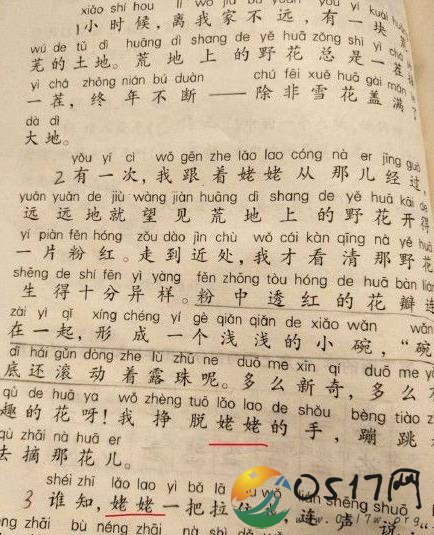 xiǎo shí hou lí wǒ jiā bù yuǎn yǒu yí kuài
1小时候,离我家不远,有一块荒
wú de tǔ dì huāng dì shang de yě huā zǒng shì yì chá
芜的土地。荒地上的野花总是一茬接
yì chá zhōng nián bú duàn chú fēi xuě huā gài mǎn
一茬,终年不断——除非雪花盖满了
dà dì
大地。
yǒu yí cì wǒ gēn zhe lǎo lao cóng nà er jīng guò
2有一次,我跟着姥姥从那儿经过,
yuǎn yuǎn de jiù wàng jiàn huāng dì shang de yě huā kāi de
远远地就望见荒地上的野花开得
yí piàn fěn hóng zǒu dào jìn chù wǒ cái kàn qīng nà yě huā
一片粉红。走到近处,我才看清那野花
shēng de shí fēn yì yàng fěn zhōng tòu hóng de huā bàn lián
生得十分异样。粉中透红的花瓣连
zài yì qǐ xíng chéng yí gè qiǎn qiǎn de xiǎo wǎn wǎn
在一起,形成一个浅浅的小碗,“碗”
dǐ hái gǔn dòng zhe lù zhū ne duō me xīn qí duō me yǒu
底还滚动着露珠呢。多么新奇,多么有
qù de huā ya wǒ zhèng tuō lǎo lao de shǒu bèng tiào
趣的花呀!我挣脱姥姥的手,蹦跳
qù zhāi nà huā er
去摘那花儿。
shéi zhī lǎo lao yì bǎ lā wǒ lián shēng shuō
3谁知,姥姥一把拉住我,连声说:“
dòng zhāi bù néng zhāi nà shì dǎ
0517网
www.0517w.com